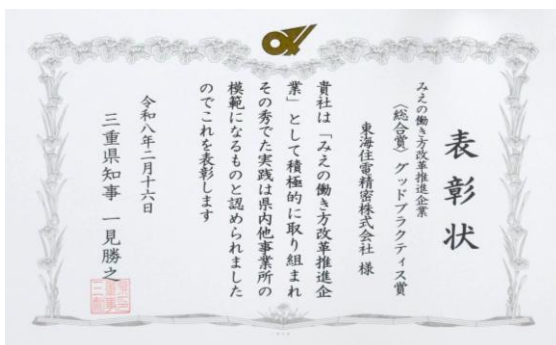 表彰状
みえの働き方改革推進企業
(総合賞)グッドプラクティス賞
東海住電精密株式会社 様
貴社は「みえの働き方改革推進企
業」として積極的に取り組まれ
その秀でた実践は県内他事業所の
模範になるものと認められました
のでこれを表彰します
令和八年二月十六日
三重県知事 一見勝之